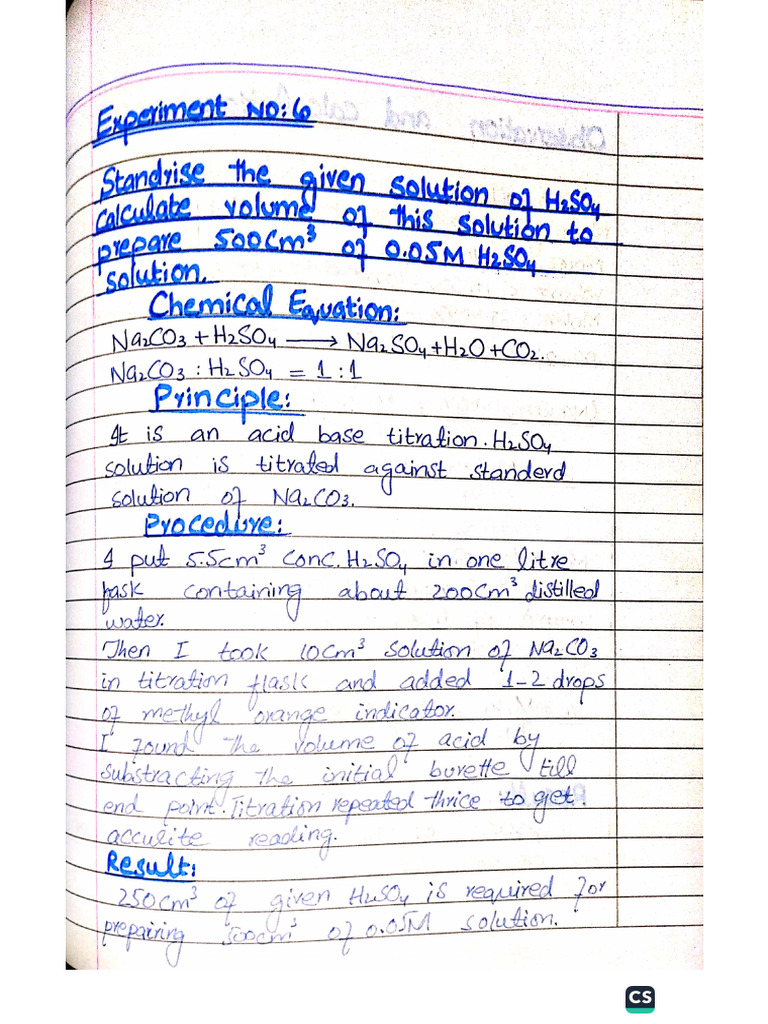 Experiment NO:6
Standrise the given solution of H₂SO₄
calculate volume of this solution to
prepare 500cm³ of 0.05M H₂SO₄
solution.
Chemical Equation:
Na₂CO₃ + H₂SO₄ ⟶ Na₂SO₄+H₂O+CO₂.
Na₂CO₃ : H₂SO₄ = 1 : 1
Principle:
It is an acid base titration. H₂SO₄
solution is titrated against standerd
solution of Na₂CO₃.
Procedure:
I put 5.5cm³ conc. H₂SO₄ in one litre
fask containing about 200cm³ distilled
water.
Then I took 10cm³ solution of Na₂CO₃
in titration flask and added 1-2 drops
of methyl orange indicator.
I found the volume of acid by
substracting the initial burette till
end point. Titration repeated thrice to get
acculite reading.
Result:
250cm³ of given H₂SO₄ is required for
prepairing 500cm³ of 0.05M solution.
CS